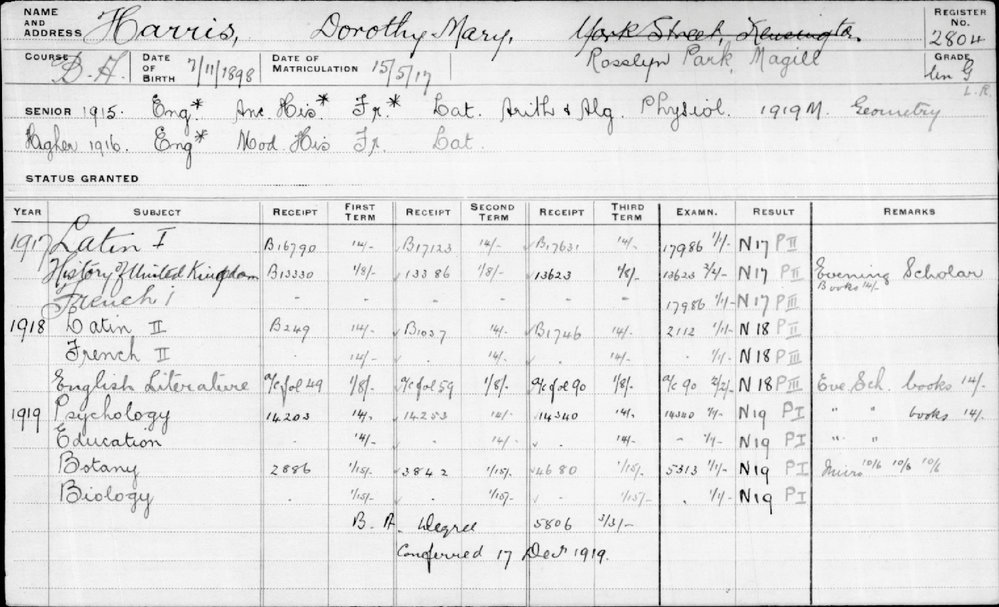 NAME AND ADDRESS Harris, Dorothy Mary, York Street, Kensington. REGISTER NO. 2804
Rosslyn Park, Magill
COURSE B.A. DATE OF BIRTH 7/11/1898 DATE OF MATRICULATION 15/5/17 GRADE G
L.R.
SENIOR 1915. Eng* Anc. His* Fr.* Lat. Arith & Alg. Physiol. 1919 M. Geometry
Higher 1916. Eng* Mod His Fr. Lat.
STATUS GRANTED
YEAR SUBJECT RECEIPT FIRST TERM RECEIPT SECOND TERM RECEIPT THIRD TERM EXAMN. RESULT REMARKS
1917 Latin I B16790 14/- B17123 14/- B17631 14/- 17986 1/1/- N17 PII
History of United Kingdom B13330 1/8/- 13386 1/8/- 13623 1/8/- 13623 2/2/- N17 PII Evening Scholar
Books 14/-
French I " " " 17986 1/1/- N17 PIII
1918 Latin II B249 14/- B1037 14/- B1746 14/- 2112 1/1/- N18 PII
French II . 14/- . 14/- . 14/- . 1/1/- N18 PIII
English Literature a/c fol 49 1/8/- a/c fol 59 1/8/- a/c fol 90 1/8/- a/c 90 2/2/- N18 PIII Eve. Sch. books 14/-
1919 Psychology 14203 14/- 14253 14/- 14340 14/- 14340 1/1/- N19 PI " " books 14/-
Education . 14/- . 14/- . 14/- " 1/1/- N19 PI " "
Botany 2886 1/15/- 3842 1/15/- 4680 1/15/- 5313 1/1/- N19 PI 10/6 10/6 10/6
Biology . 1/15/- . 1/15/- . 1/15/- . 1/1/- N19 PI
B. A. Degree 5806 3/3/-
Conferred 17 Decr 1919.